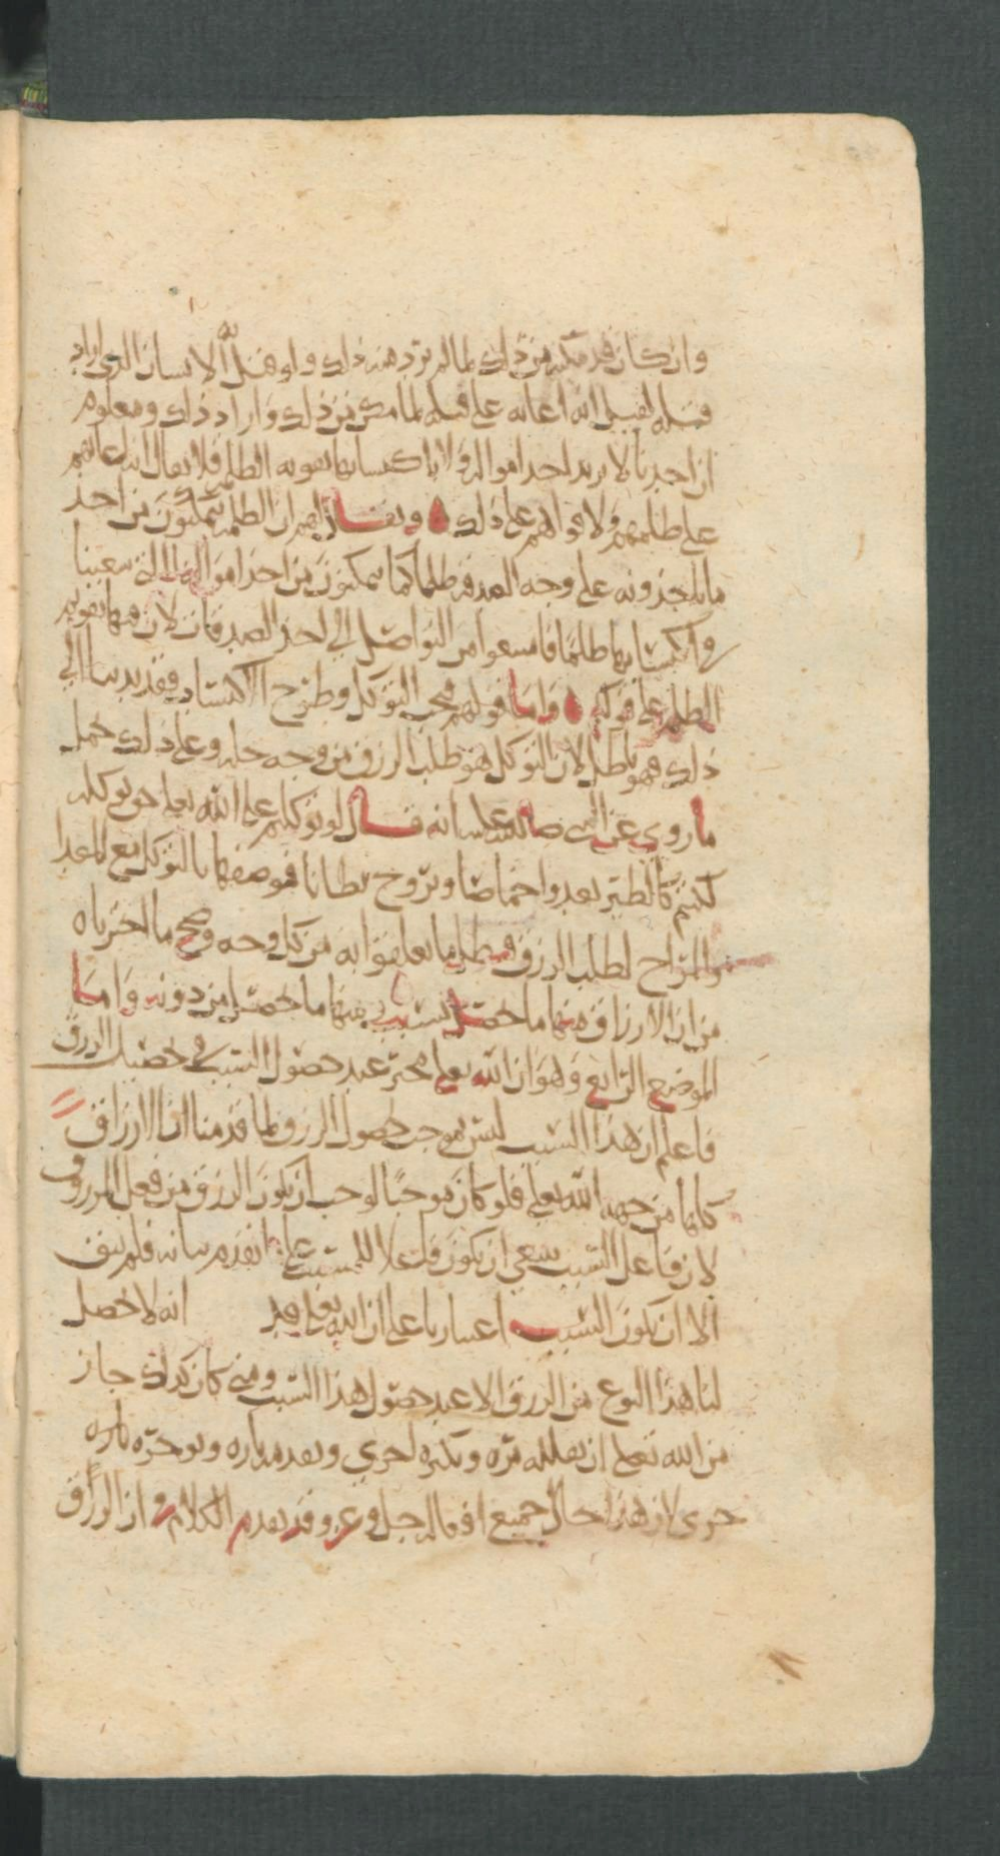 وان كان قد مكنه من ذلك لما لم يرد منه ذلك ولو فعل الانسان الذي اراد
قتله لقيل انه اعانه على قتله لما مكن من ذلك واراد ذلك ومعلوم
ان احدنا لا يريد اخذ امواله ولا باكتسابها تقوية الظلمه فلا يقال انه اعانهم
على ظلمهم ولا قواهم على ذلك وبعد فان الظلمة يتمكنون من اخذ
ما ياخذونه على وجه ظلما كما يتمكنون من اخذ اموالنا التي سعينا
في اكتسابها ظلما فامنعوا من التواصل الى اخذ لان فيها تقوية
الظلم على قولكم واما قولهم يجب التوكل وطرح الاكتساب فقد ندبنا الى
ذلك فهو باطل لان التوكل هو طلب الرزق من وجه حله وعلى ذلك حمل
ما روي عن النبي صلى الله عليه انه قال لو توكلتم على الله تعالى حق توكله
لكنتم كالطير تغدوا خماصا وتروح بطانا فوصفها بالتوكل مع المغدا
والمراح لطلب الرزق فبطل ما تعلقوا به من كل وجه وصح ما اخبرناه
من ان الارزاق منها ما حصل بسبب ومنها ما حصل من دونه واما
الموضع الرابع وهو ان الله تعالى مخير عند حصول السبب في حصول الرزق
فاعلم ان هذا السبب ليس بموجب لحصول الرزق لما قدمنا ان الارزاق
كلها من جهه الله تعالى فلو كان موجبا لوجب ان يكون الرزق من فعل المرزوق
لان فاعل السبب ينبغي ان يكون فاعلا للمسبب على ما تقدم بيانه فلم يبق
الا ان يكون السبب اعتباريا على ان الله تعالى قد انه لا يحصل
لنا هذا النوع من الرزق الا عند حصول هذا السبب ومتى كان كذلك جاز
من الله تعالى ان يقلله مره ويكثره اخرى ويقدمه تاره ويوخره تاره
اخرى لان هذا حال جميع افعاله جل وعز وقد تقدم الكلام وان الرزاق